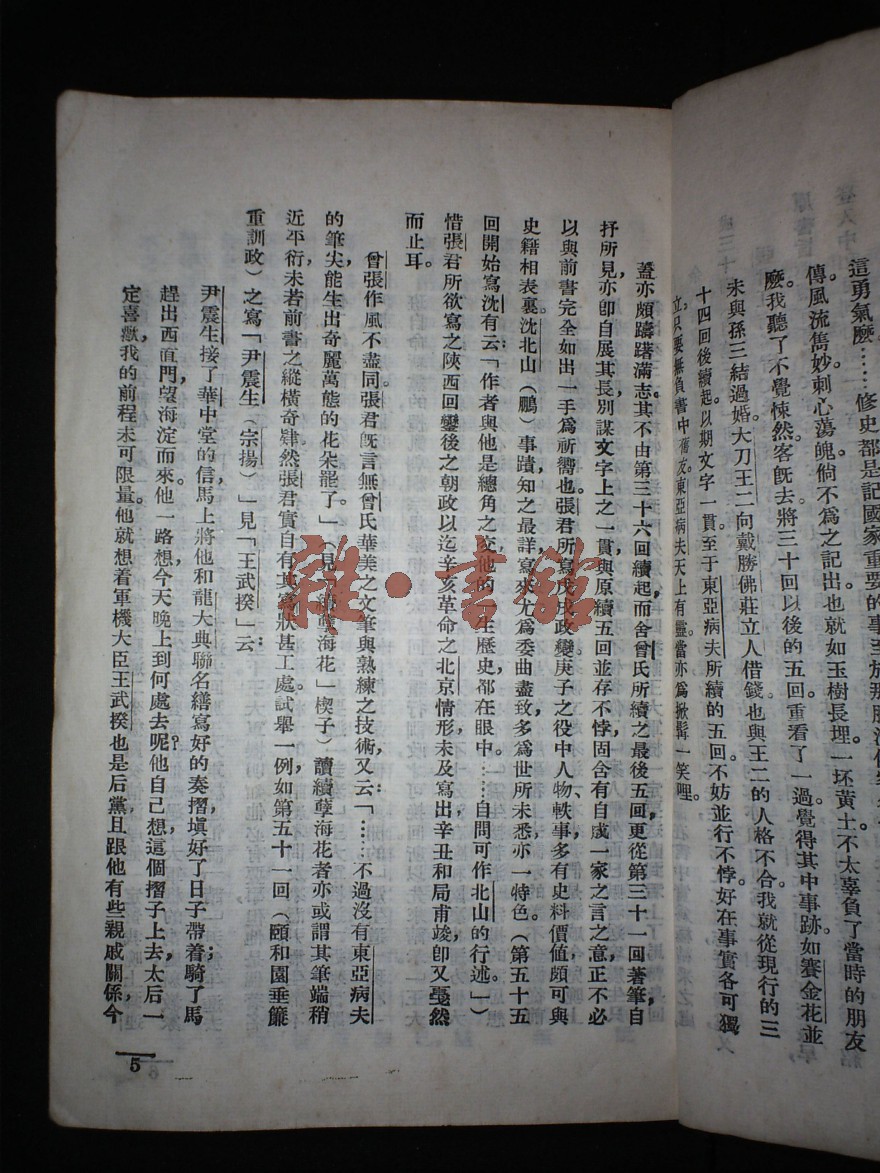 這勇氣麽……修史都是記國家重要的事至於那
傳風流雋妙刺心蕩魄倘不爲之記出也就如玉樹長埋一坏黃土不太辜負了當時的朋友
麽。我聽了不覺悚然客旣去將三十回以後的五回重看了一過覺得其中事跡如賽金花並
未與孫三結過婚大刀王二向戴勝佛莊立人借錢也與王二的人格不合。我就從現行的三
十四回後續起。以期文字一貫。至于東亞病夫所續的五回不妨並行不悖好在事實各可獨
立。只要無負書中舊友東亞病夫天上有靈當亦爲掀髯一笑哩。
蓋亦頗躊躇滿志。其不由第三十六回續起而舍曾氏所續之最後五回更從第三十一回著筆自
抒所見亦卽自展其長別謀文字上之一貫與原續五回並存不悖固含有自成一家之言之意正不必
以與前書完全如出一手爲祈嚮也。張君所寫戊戌政變庚子之役中人物、軼事多有史料價値頗可與
史籍相表裏。沈北山（鵬）事蹟知之最詳寫來尤爲委曲盡致多爲世所未悉亦一特色。（第五十五
回開始寫沈有云：「作者與他是總角之交他的一生歷史都在眼中。……自問可作北山的行述。」）
惜張君所欲寫之陝西回鑾後之朝政以迄辛亥革命之北京情形未及寫出辛丑和局甫竣卽又戞然
而止耳。
曾張作風不盡同。張君旣言無曾氏華美之文筆與熟練之技術，又云：「……不過沒有東亞病夫
的筆尖能生出奇麗萬態的花朵罷了。」（見「續孽海花」楔子）讀續孽海花者亦或謂其筆端稍
近平衍未若前書之縱橫奇肆。然張君實自有其寫狀甚工處試舉一例如第五十一回（頤和園垂簾
重訓政）之寫「尹震生（宗揚）」見「王武揆」云：
尹震生接了華中堂的信，馬上將他和龍大典聯名繕寫好的奏摺，塡好了日子帶着騎了馬；
趕出西直門望海淀而來。他一路想，今天晚上到何處去呢？他自己想這個摺子上去，太后一
定喜歡，我的前程未可限量。他就想着軍機大臣王武揆也是后黨且跟他有些親戚關係今
5
雜·書館